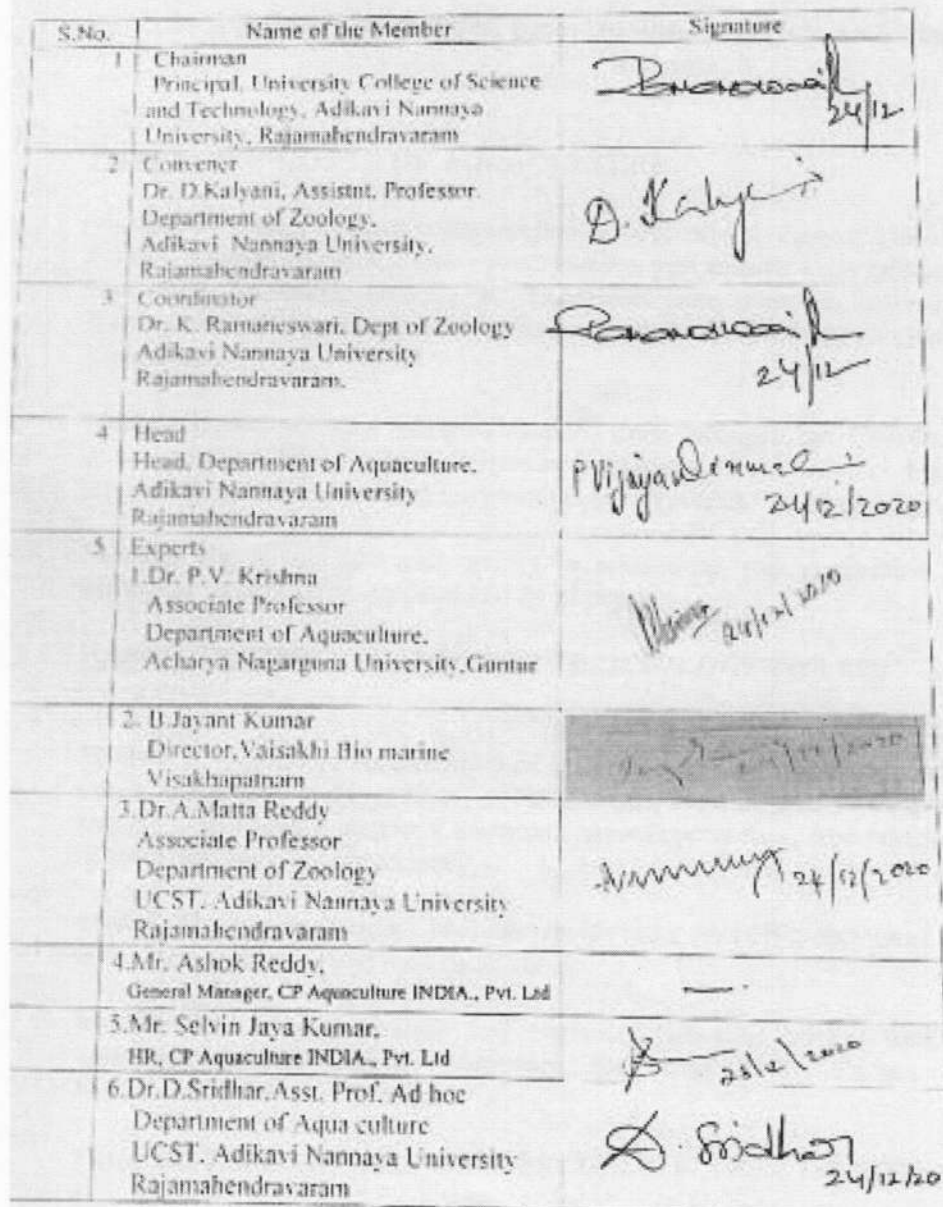 S.No. Name of the Member Signature
1 Chairman
Principal, University College of Science
and Technology, Adikavi Nannaya
University, Rajamahendravaram
24/12
2 Convener
Dr. D.Kalyani, Assistnt. Professor.
Department of Zoology,
Adikavi Nannaya University,
Rajamahendravaram
D. Kalyani
3 Coordinator
Dr. K. Ramaneswari, Dept of Zoology
Adikavi Nannaya University
Rajamahendravaram.
24/12
4 Head
Head, Department of Aquaculture.
Adikavi Nannaya University
Rajamahendravaram
24/12/2020
5 Experts
1.Dr. P.V. Krishna
Associate Professor
Department of Aquaculture.
Acharya Nagarguna University,Guntur
24/12/2020
2. B.Jayant Kumar
Director,Vaisakhi Bio marine
Visakhapatnam
24/12/2020
3.Dr.A.Matta Reddy
Associate Professor
Department of Zoology
UCST. Adikavi Nannaya University
Rajamahendravaram
24/12/2020
4.Mr. Ashok Reddy,
General Manager, CP Aquaculture INDIA., Pvt. Ltd
5.Mr. Selvin Jaya Kumar,
HR, CP Aquaculture INDIA., Pvt. Ltd
6.Dr.D.Sridhar,Asst. Prof. Ad hoc
Department of Aqua culture
UCST. Adikavi Nannaya University
Rajamahendravaram
D. Sridhar
24/12/20